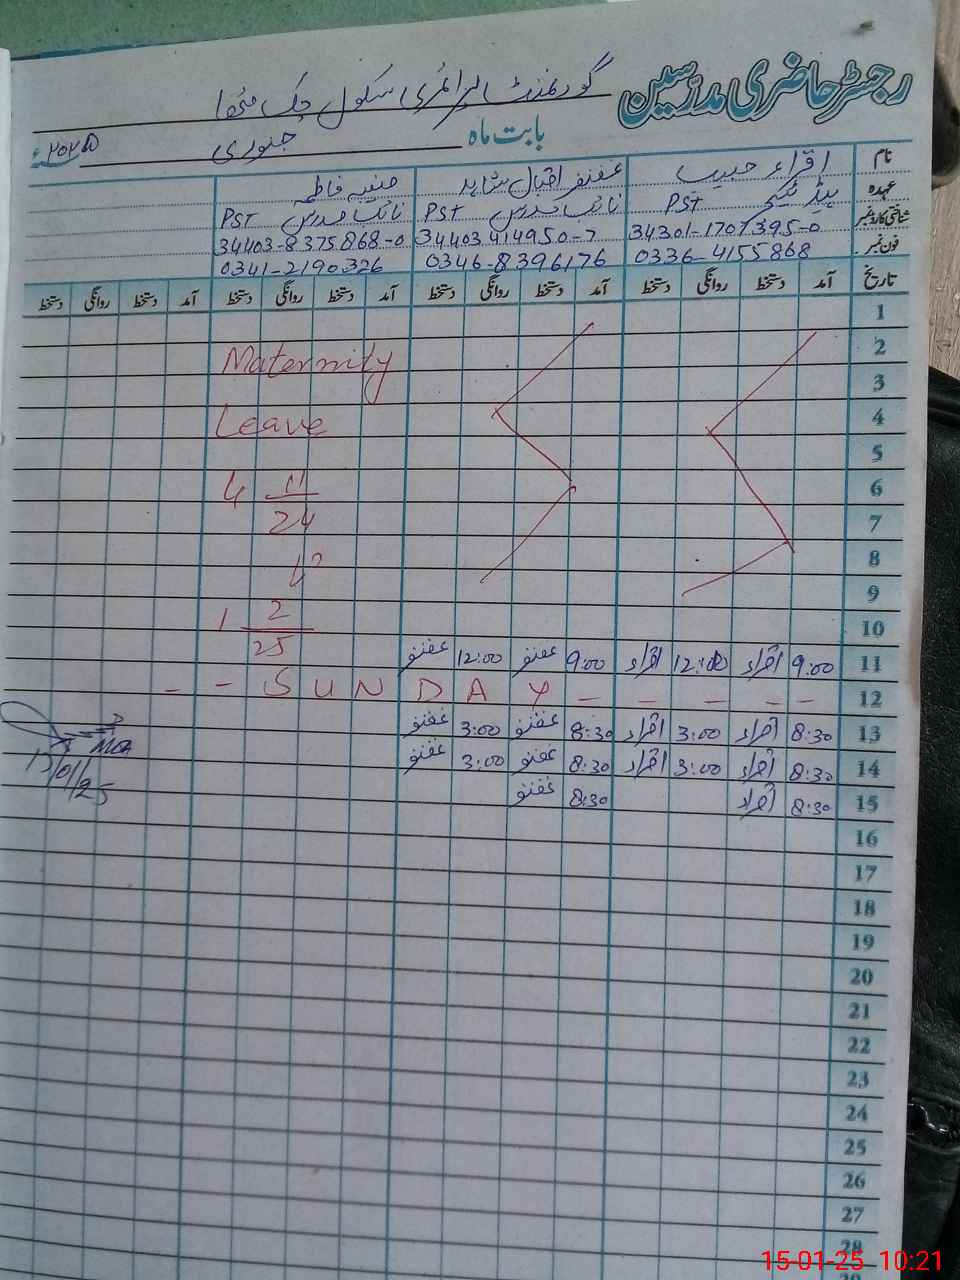 رجسٹر حاضری مدرسین
گورنمنٹ پرائمری سکول چک مٹھا
بابت ماہ جنوری ۲۰۲۵ء
نام اقراء حبیب غضنفر اقبال شاہد صفیہ فاطمہ
عہدہ ہیڈ ٹیچر PST نائب مدرس PST نائب مدرس PST
شناختی کارڈ نمبر 34301-1707395-0 34403 414950-7 34403-8375868-0
فون نمبر 0336-4155868 0346-8396176 0341-2190326
تاریخ آمد دستخط روانگی دستخط آمد دستخط روانگی دستخط آمد دستخط روانگی دستخط آمد دستخط روانگی دستخط
1
2 Maternity
3
4 Leave
5
6 4 11
7 24
8 to
9
10 1 2
25
11 9:00 اقراء 12:00 اقراء 9:00 غضنفر 12:00 غضنفر
12 - - S U N D A Y - - - - -
13 8:30 اقراء 3:00 اقراء 8:30 غضنفر 3:00 غضنفر
14 8:30 اقراء 3:00 اقراء 8:30 غضنفر 3:00 غضنفر
15 8:30 اقراء 8:30 غضنفر
MEA
15/01/25
16
17
18
19
20
21
22
23
24
25
26
27
28
15-01-25 10:21